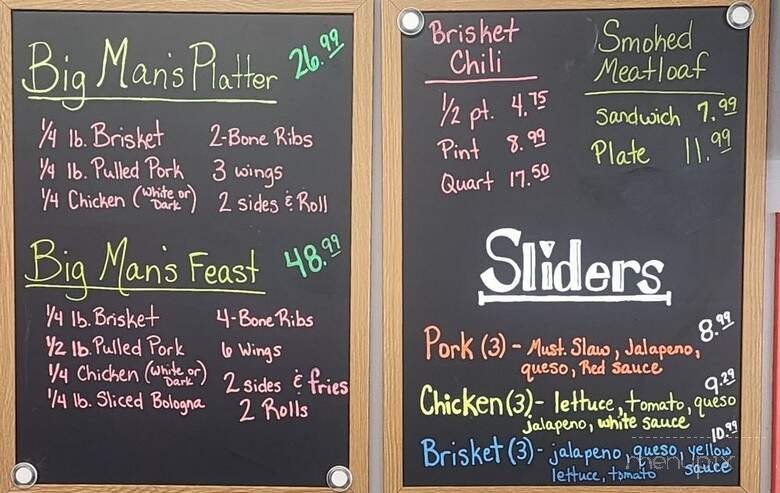 Big Man's Platter 26.99
1/4 lb. Brisket 2-Bone Ribs
1/4 lb. Pulled Pork 3 wings
1/4 Chicken (White or Dark) 2 sides & Roll
Big Man's Feast 48.99
1/4 lb. Brisket 4-Bone Ribs
1/2 lb. Pulled Pork 6 Wings
1/4 Chicken (White or Dark) 2 sides & fries
1/4 lb. Sliced Bologna 2 Rolls
Brisket
Chili
1/2 pt. 4.75
Pint 8.99
Quart 17.50
Smoked
Meatloaf
Sandwich 7.99
Plate 11.99
Sliders
8.99
Pork (3) - Must. Slaw, Jalapeno,
queso, Red sauce
9.29
Chicken (3) - lettuce, tomato, queso
jalapeno, white sauce
10.99
Brisket (3) - jalapeno, queso, yellow
lettuce, tomato sauce
menupix